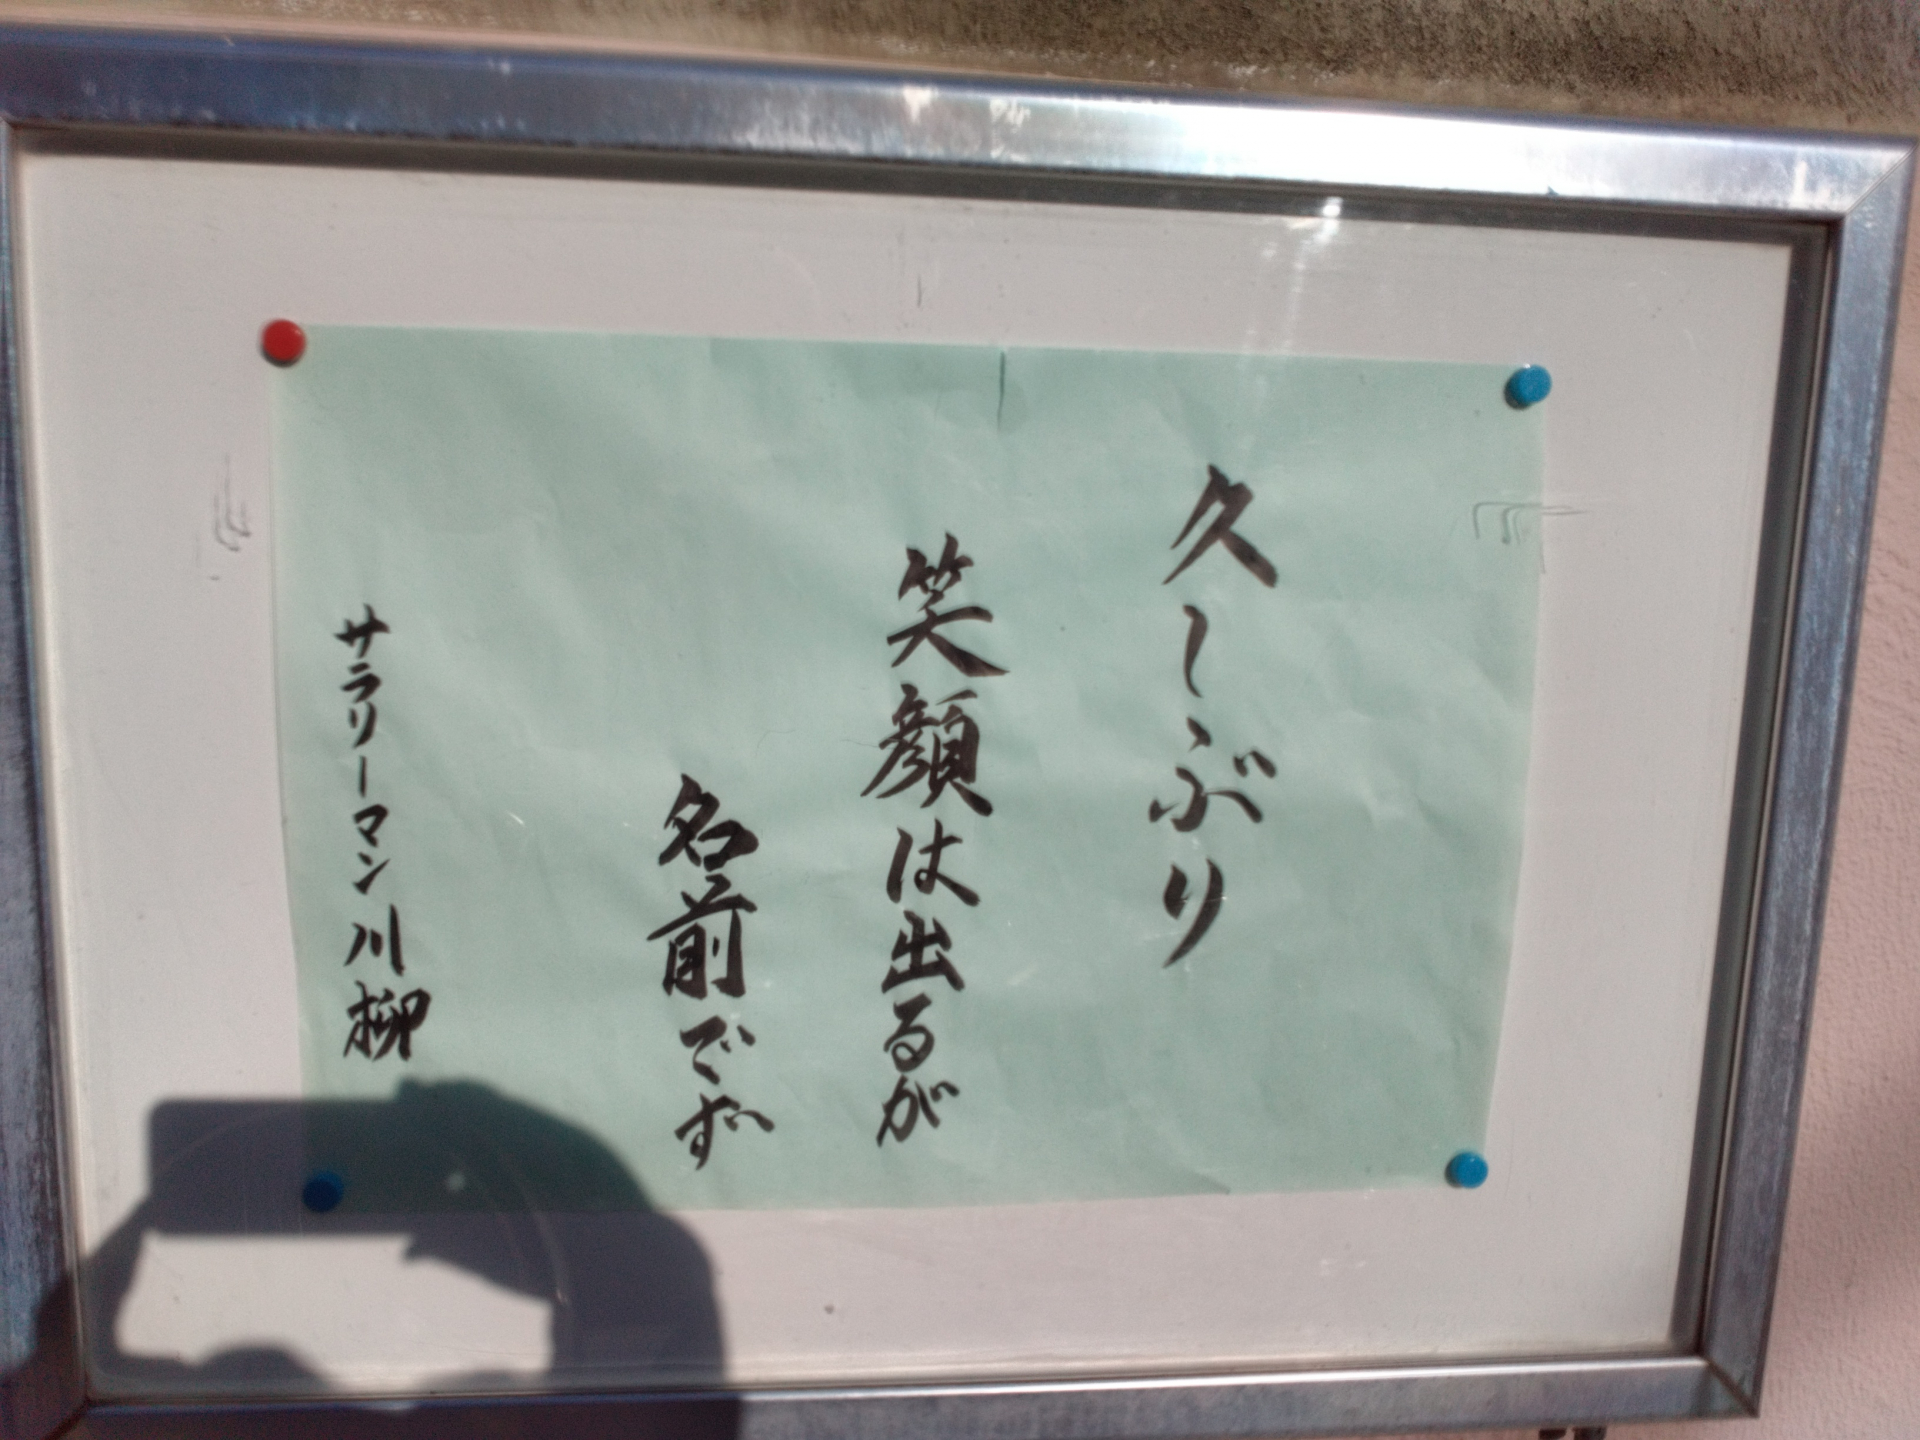 久しぶり
笑顔は出るが
名前でず
サラリーマン川柳